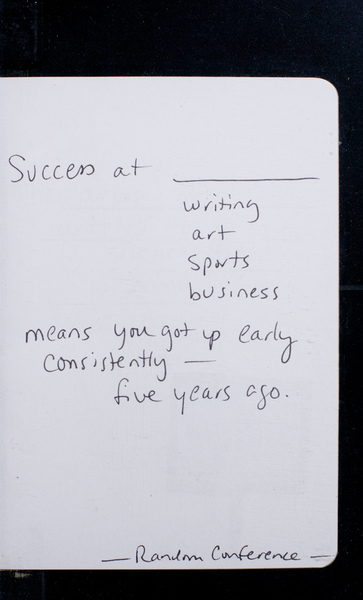 Success at ________
writing
art
sports
business
means you got up early
consistently —
five years ago.
— Random Conference —